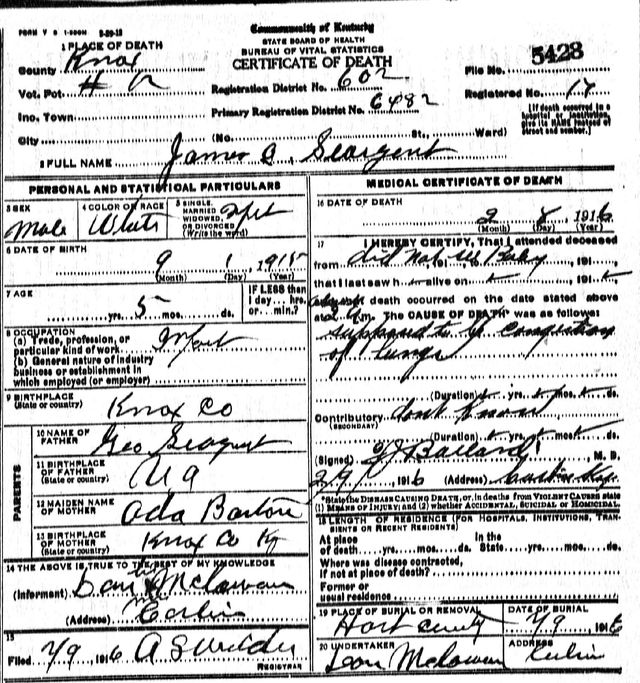 FORM V S 1-500M 9-29-13
Commonwealth of Kentucky
STATE BOARD OF HEALTH
BUREAU OF VITAL STATISTICS
CERTIFICATE OF DEATH
1 PLACE OF DEATH
County Knox
Vot. Pct.
Ino. Town
City (No. St., Ward)
Registration District No. 602
Primary Registration District No. 6482
File No. 5428
Registered No. 17
[If death occurred in a hospital or institution, give its NAME instead of street and number.]
2 FULL NAME James C. Seargent
PERSONAL AND STATISTICAL PARTICULARS
3 SEX Male
4 COLOR OR RACE White
5 SINGLE, MARRIED WIDOWED, OR DIVORCED (Write the word)
6 DATE OF BIRTH 9 1 1915
(Month) (Day) (Year)
7 AGE yrs. 5 mos. ds.
IF LESS than 1 day... hrs. or... min.?
8 OCCUPATION
(a) Trade, profession, or particular kind of work Infant
(b) General nature of industry business or establishment in which employed (or employer)
9 BIRTHPLACE (State or country) Knox Co
PARENTS
10 NAME OF FATHER Geo Seargent
11 BIRTHPLACE OF FATHER (State or country)
12 MAIDEN NAME OF MOTHER Oda Barton
13 BIRTHPLACE OF MOTHER (State or country) Knox Co Ky
14 THE ABOVE IS TRUE TO THE BEST OF MY KNOWLEDGE
(Informant)
(Address) Corbin
15
Filed 2/9 1916 REGISTRAR
MEDICAL CERTIFICATE OF DEATH
16 DATE OF DEATH 2 8 1916
(Month) (Day) (Year)
17 I HEREBY CERTIFY, That I attended deceased
from did not see Baby 191
that I last saw h alive on 191
death occurred on the date stated above
at m. The CAUSE OF DEATH was as follows:
supposed to be congestion
of lungs
(Duration) yrs. mos. ds.
Contributory (SECONDARY) dont Know
(Duration) yrs. mos. ds.
(Signed) Ballard M. D.
2 9 1916 (Address) Corbin Ky
*State the DISEASE CAUSING DEATH, or, in deaths from VIOLENT CAUSES state (1) MEANS OF INJURY; and (2) whether ACCIDENTAL, SUICIDAL OR HOMICIDAL.
18 LENGTH OF RESIDENCE (FOR HOSPITALS, INSTITUTIONS, TRANSIENTS OR RECENT RESIDENTS)
At place of death yrs. mos. ds. In the State yrs. mos. ds.
Where was disease contracted, If not at place of death?
Former or usual residence
19 PLACE OF BURIAL OR REMOVAL Hart
DATE OF BURIAL 2/9 1916
20 UNDERTAKER
ADDRESS Corbin